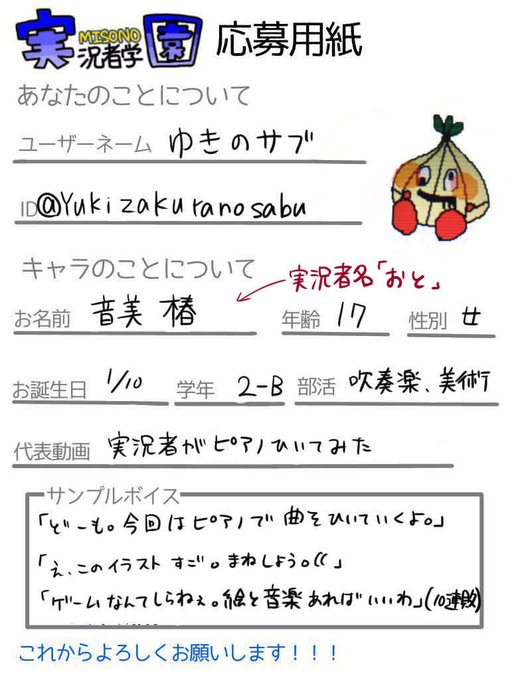 実況者学園 MISONO 応募用紙
あなたのことについて
ユーザーネーム ゆきのサブ
ID @Yukizakuranosabu
キャラのことについて
実況者名「おと」
お名前 音美 椿 年齢 17 性別 女
お誕生日 1/10 学年 2-B 部活 吹奏楽、美術
代表動画 実況者がピアノひいてみた
サンプルボイス
「どーも。今回はピアノで曲をひいていくよ。」
「え、このイラストすご。まねしよう。((」
「ゲームなんてしらねぇ。絵と音楽あればいいわ」(10連敗)
これからよろしくお願いします!!!